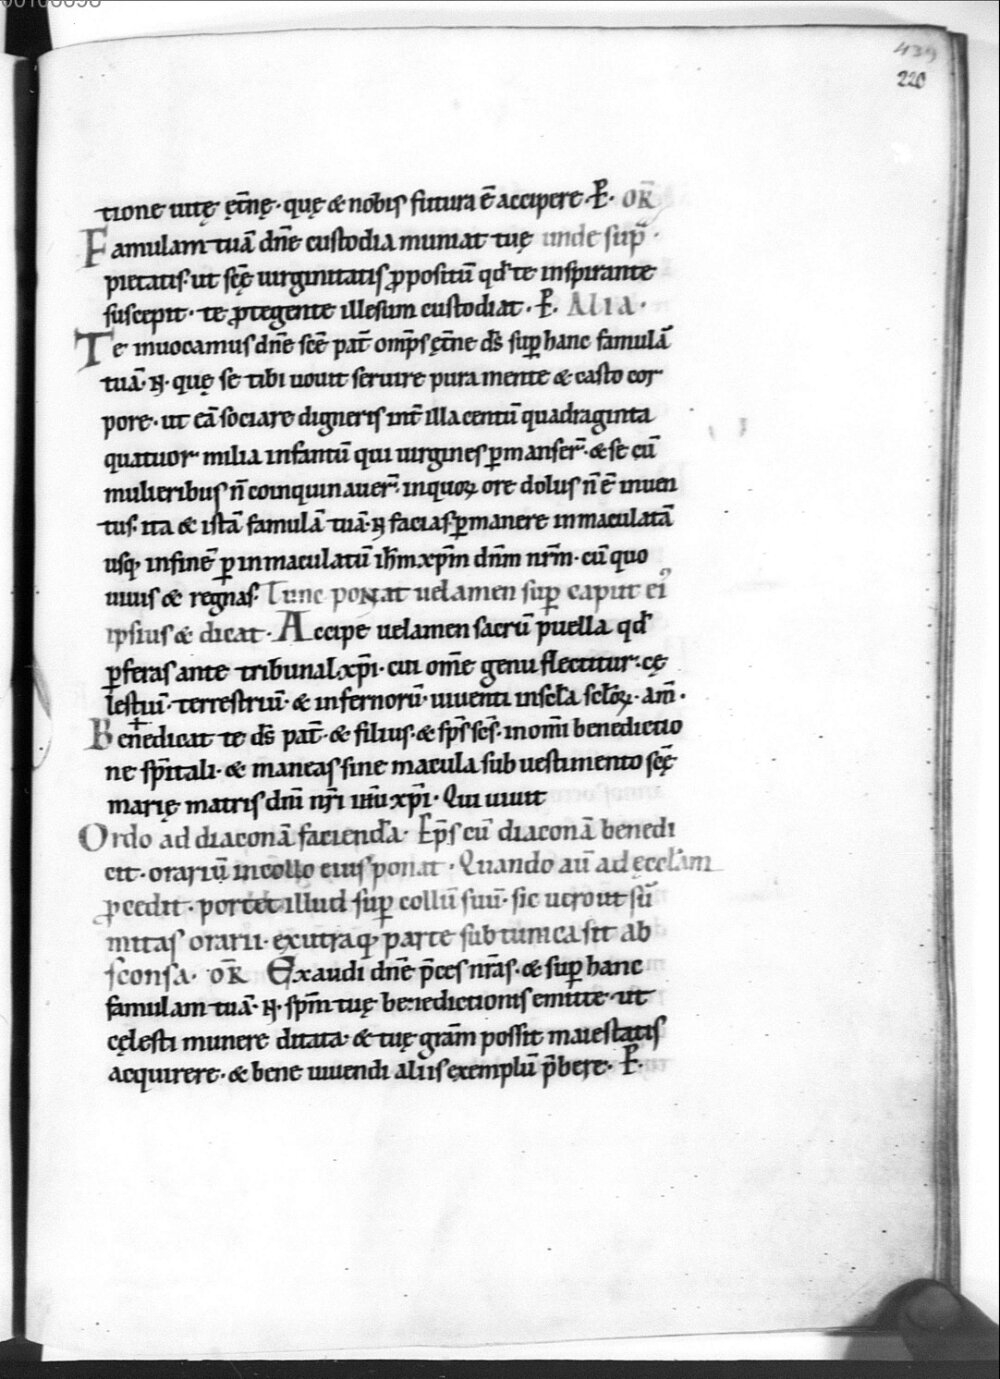 439
220
tione uitę ęt̄nę· quę & nob̄ futura ē accipere· P̄. OR̄
Famulam tuā dn̄e custodia muniat tuę unde sup̄·
pietatis· ut sc̄ę uirginitatis ꝓpositū qd̄ te inspirante
suscepit· te ꝓtegente illesum custodiat· P̄. Alia·
Te inuocamus dn̄e sc̄e pat̄ omp̄s ęt̄ne ds̄ suꝑ hanc famulā
tuā· N̄· quę se tibi uouit seruire pura mente & casto cor
pore· ut eā sociare digneris int̄ illa centū quadraginta
quatuor milia infantū qui uirgines ꝑmanser̄· & se cū
mulieribus n̄ coinquinauer̄· in quoꝝ ore dolus n̄ ē inuen
tus· ita & istā famulā tuā· N̄ facias ꝑmanere inmaculatā
usq; in finē ꝑ inmaculatū ih̄m xp̄m dn̄m nr̄m· cū quo
uiuis & regnas· Tunc ponat uelamen suꝑ caput ei᾽
ipsius & dicat· Accipe uelamen sacrū puella qd̄
ꝑferas ante tribunal xp̄i· cui om̄e genu flectitur· cę
lestiū· terrestriū· & infernorū· uiuenti in scl̄a scl̄oꝝ· am̄·
Ben✝edicat te ds̄ pat̄· & filius· & sp̄s sc̄s· in om̄i benedictio
ne sp̄itali· & maneas sine macula sub uestimento sc̄ę
marię matris dn̄i nr̄i ih̄u xp̄i· Qui uiuit
Ordo ad diaconā faciendā· Ep̄s cū diaconā benedi
cit· orariū in collo eius ponat· Quando aū ad ęccl̄am
ꝓcedit· portet illud suꝑ collū suū· sic uero ut sū
mitas orarii· ex utraq; parte sub tunica sit ab
sconsa· OR̄ Exaudi dn̄e p̄ces nr̄as· & suꝑ hanc
famulam tuā· N̄· sp̄m tuę benedictionis emitte· ut
cęlesti munere ditata· & tuę gr̄am possit maiestatis
acquirere· & bene uiuendi aliis exemplū p̄bere· P̄.